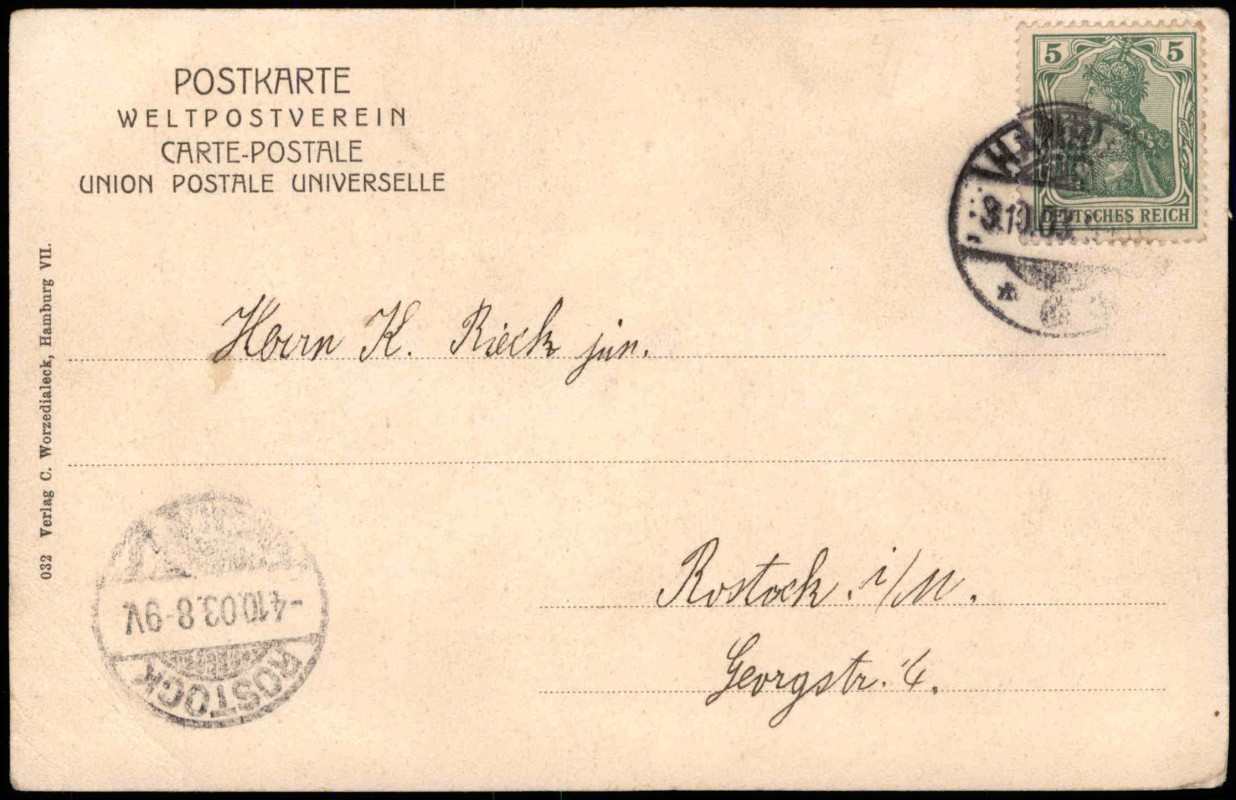 POSTKARTE
WELTPOSTVEREIN
CARTE-POSTALE
UNION POSTALE UNIVERSELLE
5 5
DEUTSCHES REICH
3.10.03.
Herrn K. Rieck jun.
Rostock i/M.
Georgstr. 4.
032 Verlag C. Worzedialeck, Hamburg VII.
ROSTOCK
-4.10.03.8-9V.